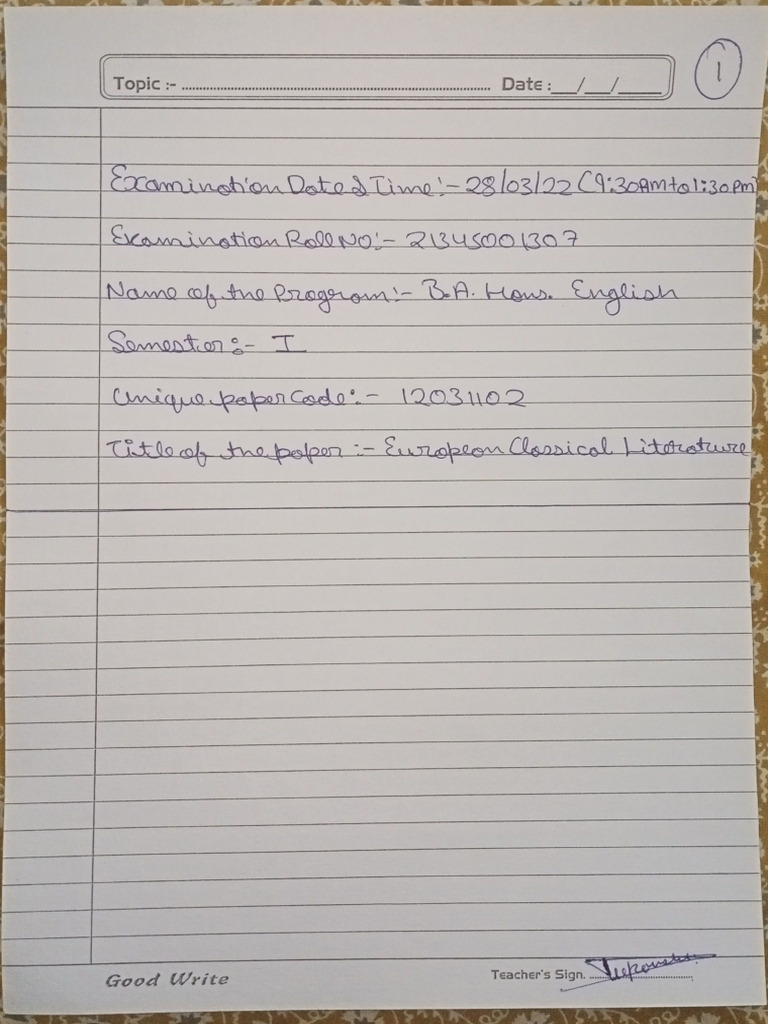 1
Topic :- ........................................ Date :__/__/____
Examination Date & Time:- 28/03/22 (9:30AM to 1:30PM)
Examination Roll NO:- 21345001307
Name of the Program:- B.A. Hons. English
Semester:- I
Unique paper Code:- 12031102
Title of the paper:- European Classical Literature
Good Write
Teacher's Sign. ....................